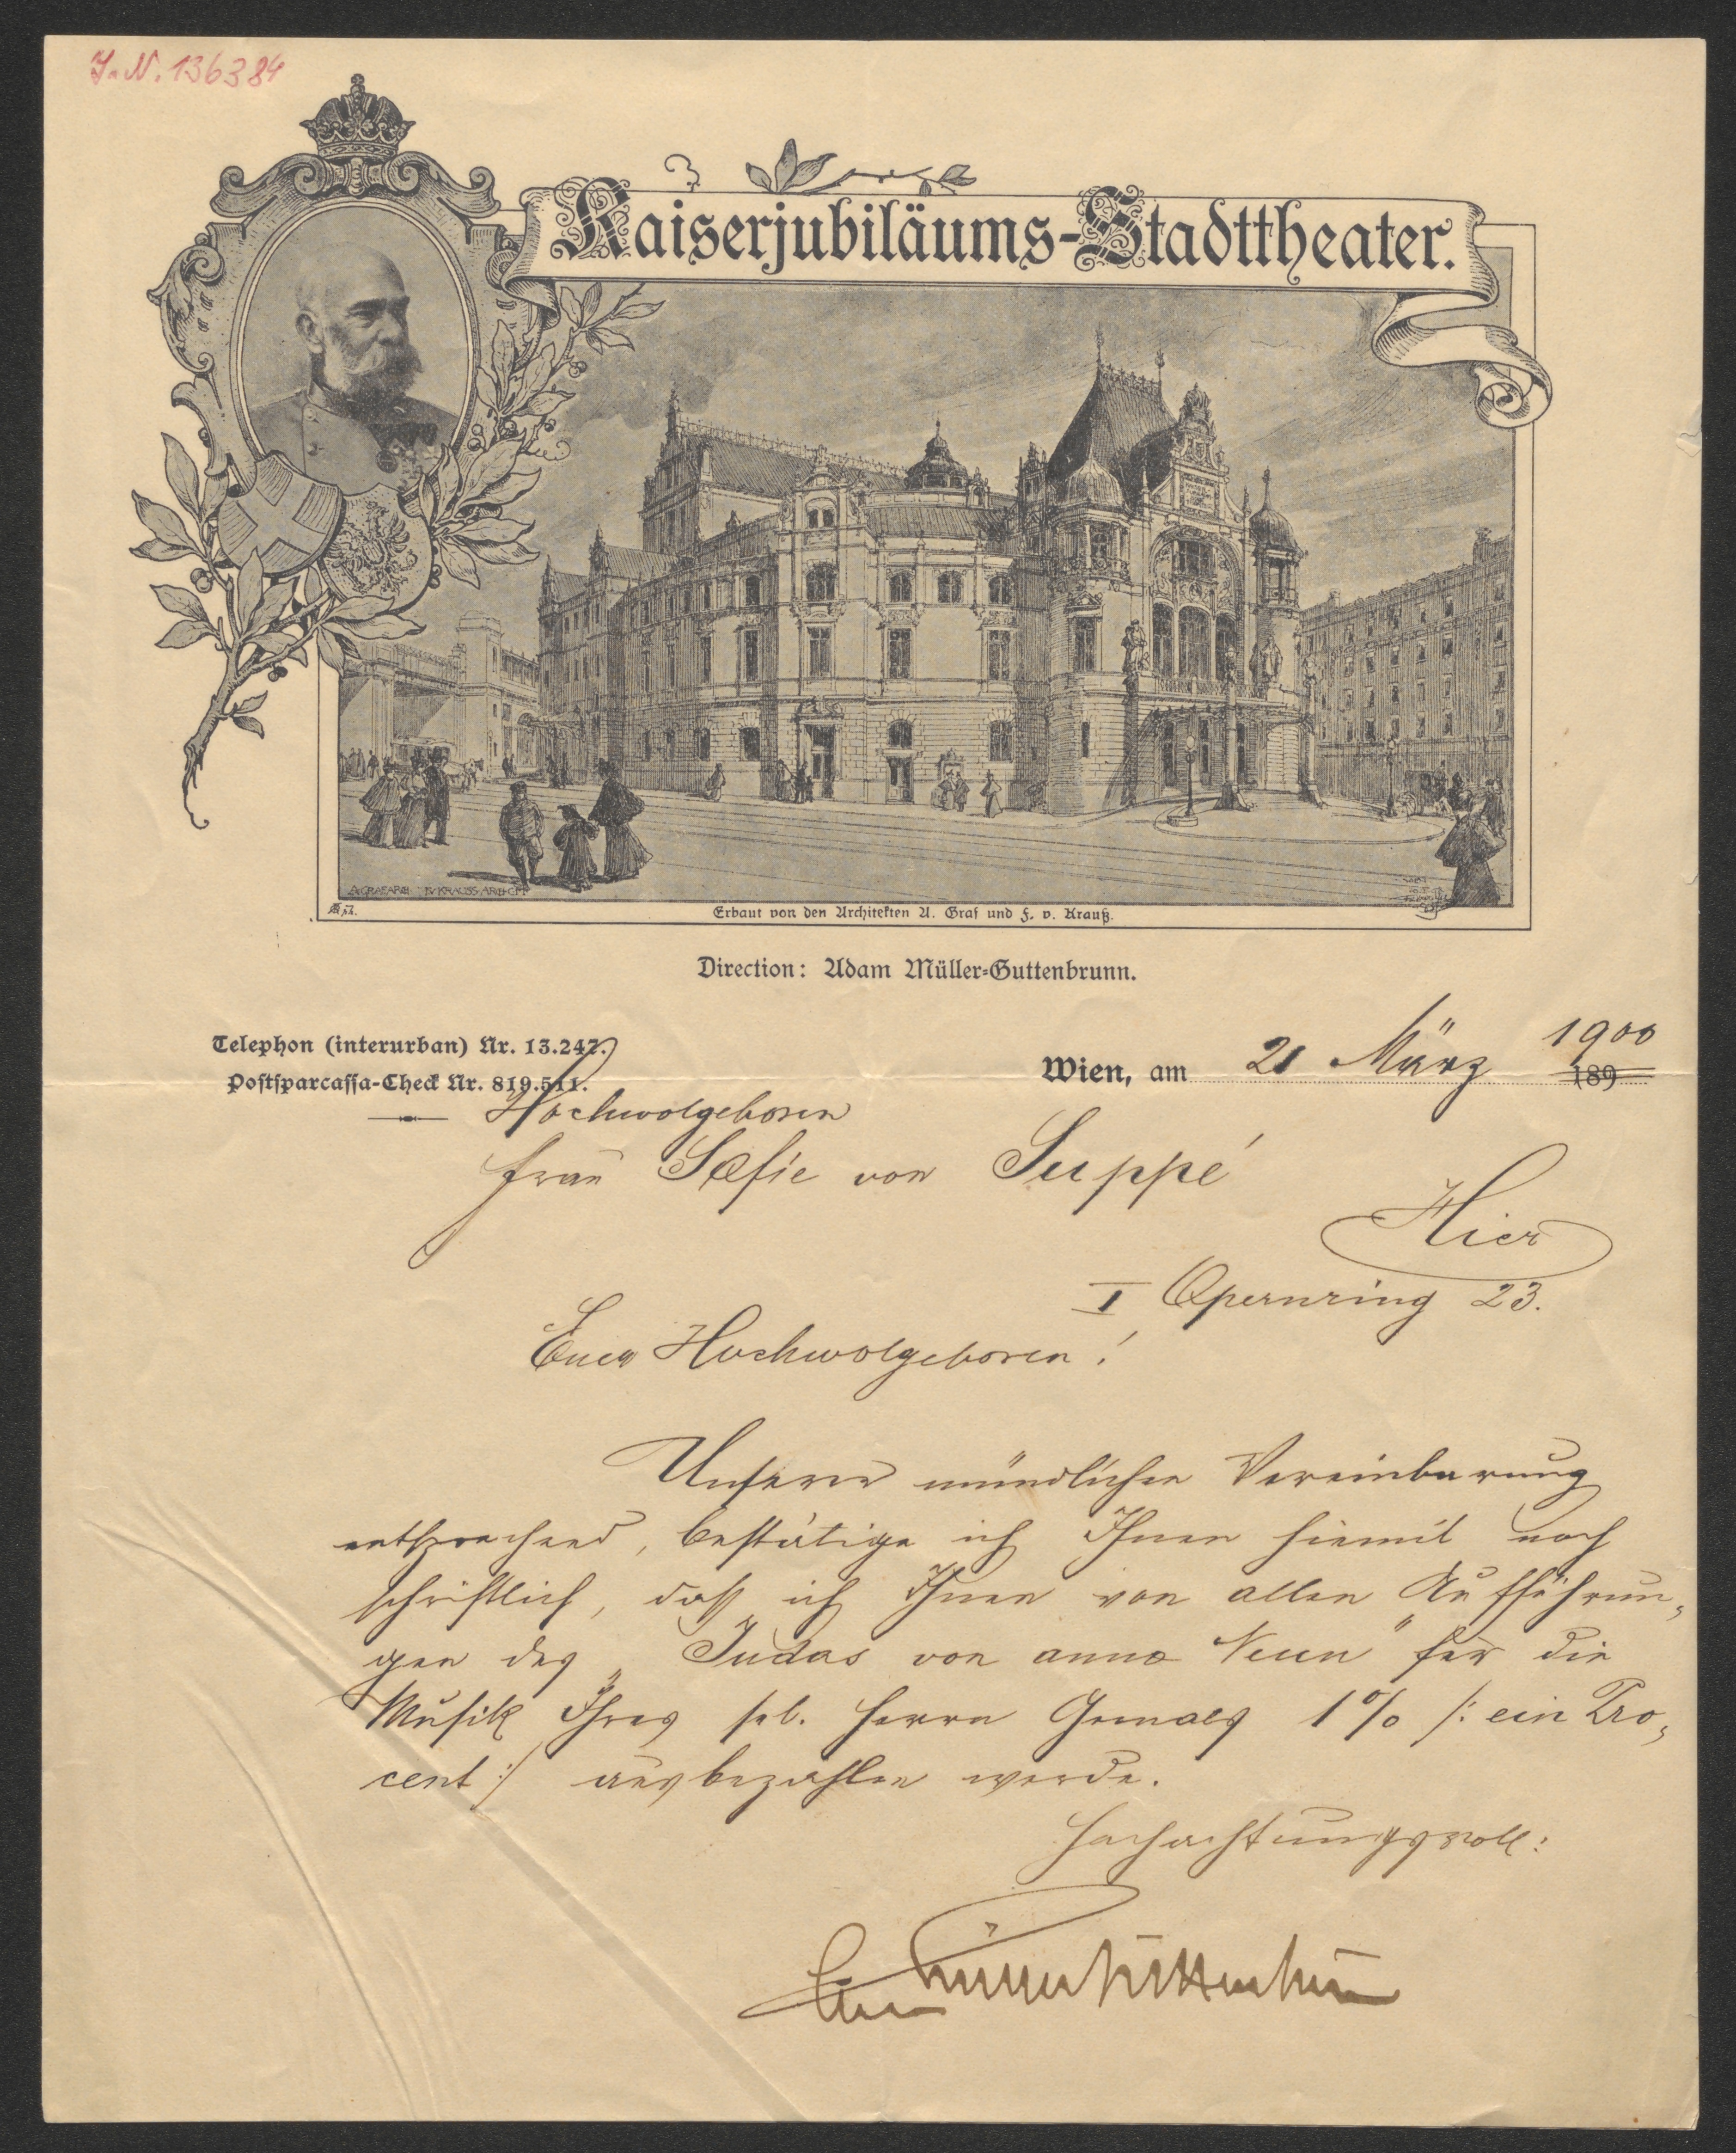 J.N. 136384
Kaiserjubiläums-Stadttheater.
A. GRAF ARCH. F. V. KRAUSS ARCHCT
Erbaut von den Architekten A. Graf und F. v. Krauß.
Direction: Adam Müller-Guttenbrunn.
Telephon (interurban) Nr. 13.247.
Postsparcassa-Check Nr. 819.511.
Wien, am 21 März 1900
189
Hochwolgeboren
Frau Sofie von Suppé
Hier
I Opernring 23.
Euer Hochwolgeboren!
Unserer mündlichen Vereinbarung
entsprechend, bestätige ich Ihnen hiemit noch
schriftlich, daß ich Ihnen von allen Aufführun-
gen des „Judas von anno Neun" für die
Musik Ihres sel. Herrn Gemals 1% /: ein Pro-
cent :/ ausbezahlen werde.
Hochachtungsvoll:
Adam Müller-Guttenbrunn